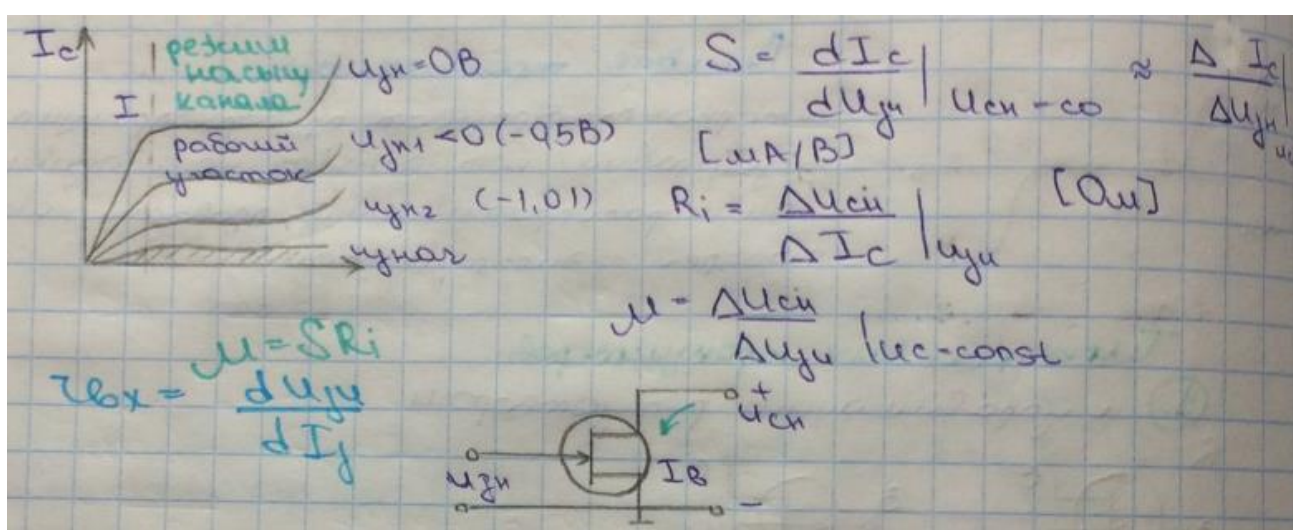 Ic
режим
насыщ
канала
I
Uзи=0В
рабочий
участок
Uзи1 <0 (-0,5В)
Uзи2 (-1,01)
Uзнач
S = dIc / dUзи | Uси - co ≈ Δ Ic / ΔUзи |
[мА/В]
Ri = ΔUси / Δ Ic | Uзи [Ом]
μ = ΔUси / ΔUзи | Uc-const
μ=SRi
rвх = dUзи / dIз
+
Uси
Uзи
Iв
-